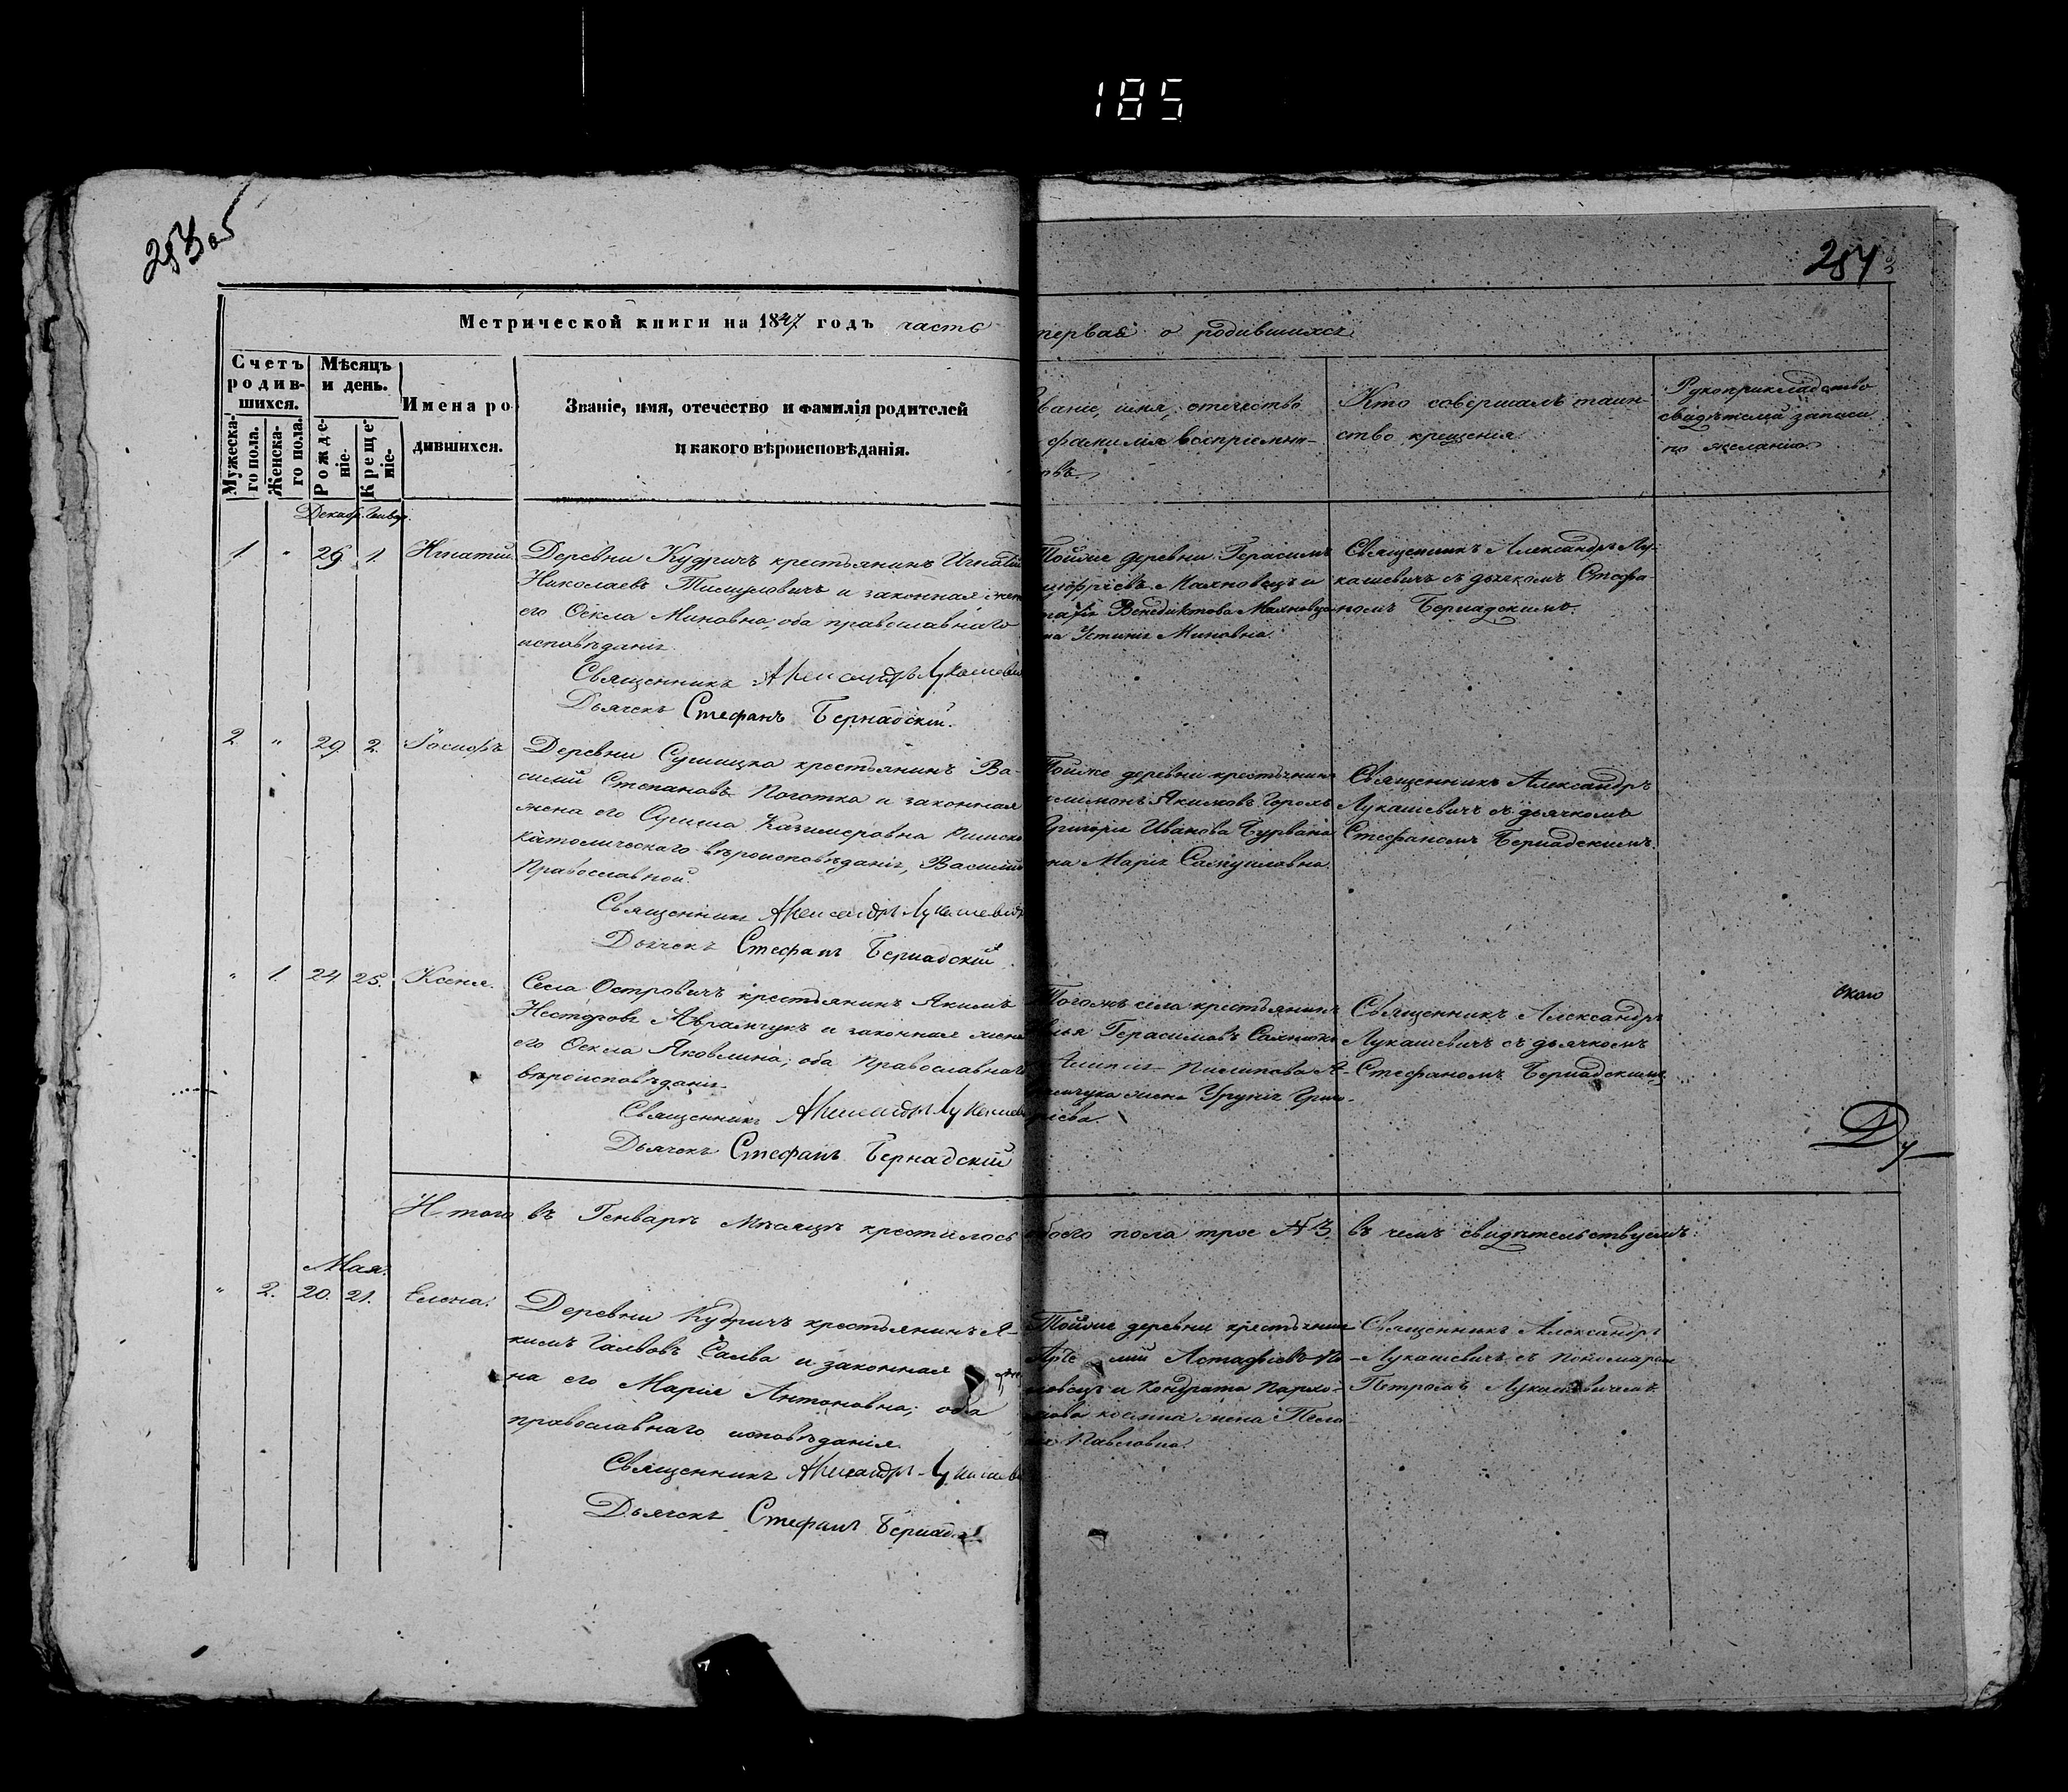 185
253 об
254
Метрической книги на 1847 годъ часть
первая о родившихся
Счетъ родив-шихся.
Мѣсяцъ и день.
Мужеска-го пола.
Женска-го пола.
Рожде-ніе.
Креще-ніе.
Имена ро
дившихся.
Званіе, имя, отечество и фамилія родителей
и какого вѣроисповѣданія.
Званіе, имя, отечество
фамилія воспріемни-
овъ
Кто совершалъ таин-
ство крещенія
Рукоприкладство
свидѣтелей записи
по желанію
Декабр. Генвар.
1 " 26 1. Игнатій
Деревни Кудричъ крестьянинъ Игнатій
Николаевъ и законная жена
его Миновна, оба православнаго
исповѣданія.
Священникъ Александръ Лукашевич
Дьячекъ Стефанъ Бернадскій.
Тойже деревни Герасимъ
Маяновецъ и
Венедиктова
на Устинія Миновна.
Священникъ Александръ Лу-
кашевичъ съ дьячкомъ Стефа-
номъ Бернадскимъ.
2. " 29. 2. Іосифъ
Деревни Сушицка крестьянинъ Ва-
силій Степановъ Поготка и законная
жена его Казимеровна Римско
католическаго вѣроисповѣданія, Василій
Православной.
Священникъ Александръ Лукашевич
Дьячекъ Стефанъ Бернадскій
Тойже деревни крестьянинъ
Якимовъ Горохъ
Григорія Иванова
на Марія Самуиловна
Священникъ Александръ
Лукашевичъ съ дьячкомъ
Стефаномъ Бернадскимъ.
" 1. 24 25. Ксенія.
Села Островичъ крестьянинъ Якимъ
Несторовъ Аврамчукъ и законная жена
его Яковлина; оба Православнаго
вѣроисповѣданія.
Священникъ Александръ Лукашев
Дьячекъ Стефанъ Бернадскій
Тогожъ села крестьянинъ
Илья Герасимовъ
Пилипова А-
рамчука жена Григо-
ріева.
Священникъ Александръ
Лукашевичъ съ дьячкомъ
Стефаномъ Бернадскимъ
Ду
Итого въ Генварѣ Мѣсяцѣ крестилось обоего пола трое №3. въ чемъ свидѣтельствуемъ:
Мая.
" 2. 20. 21. Елена.
Деревни Кудричъ крестьянинъ Я-
кимъ и законная же
на его Марія Антоновна; оба
православнаго исповѣданія.
Священникъ Александръ Лукашев
Дьячекъ Стефанъ Бернад
Тойже деревни крестьянин
Артемій Астафіевъ
и Кондрата Пархо-
мова жена Пела
ія Павловна.
Священникъ Александръ
Лукашевичъ съ пономаремъ
Петромъ Лукашевичемъ.